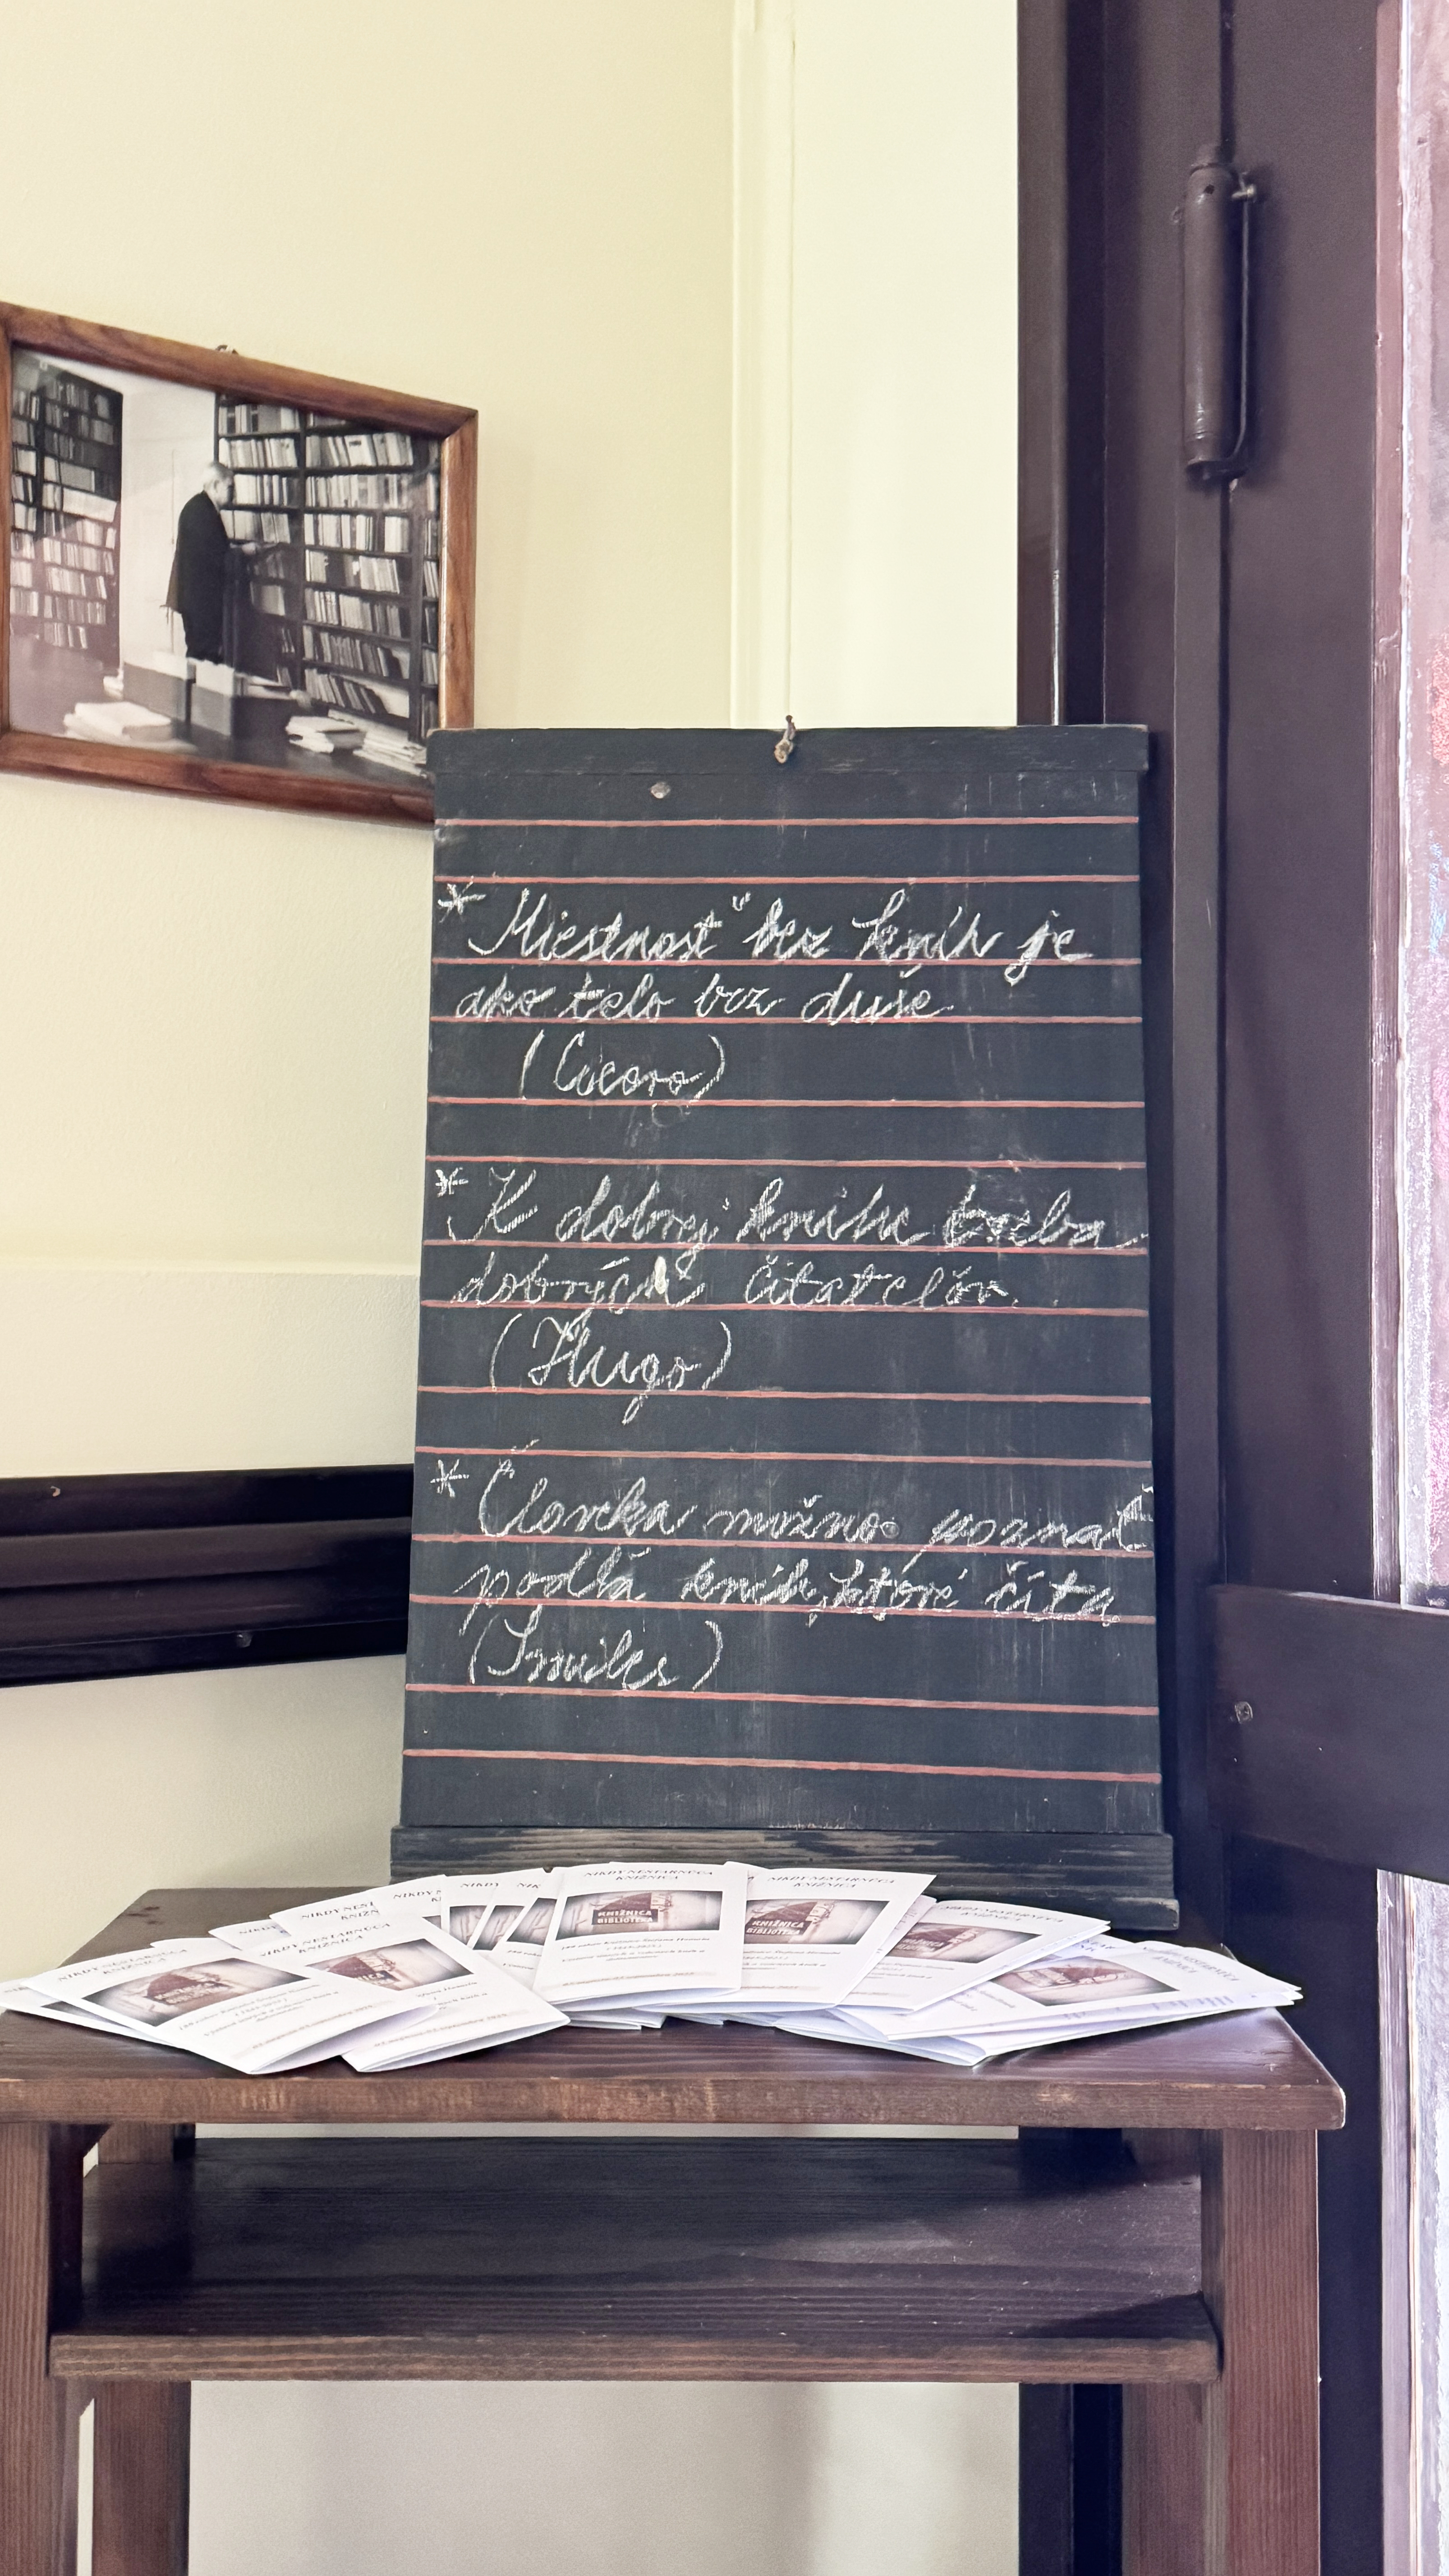 * Miestnosť bez kníh je
ako telo bez duše
(Cicero)
* K dobrej knihe treba
dobrých čitateľov.
(Hugo)
* Človeka možno poznať
podľa kníh, ktoré číta
(Smiles)
NIKDY NESTARNÚCA
KNIŽNICA
KNIŽNICA
BIBLIOTEKA
NIKDY NESTARNÚCA
KNIŽNICA
KNIŽNICA
BIBLIOTEKA